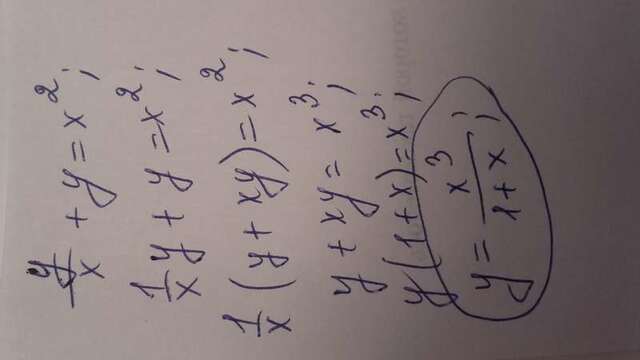 y/x + y = x²;
1/x y + y = x²;
1/x (y + xy) = x²;
y + xy = x³;
y(1+x) = x³;
y = x³/(1+x);